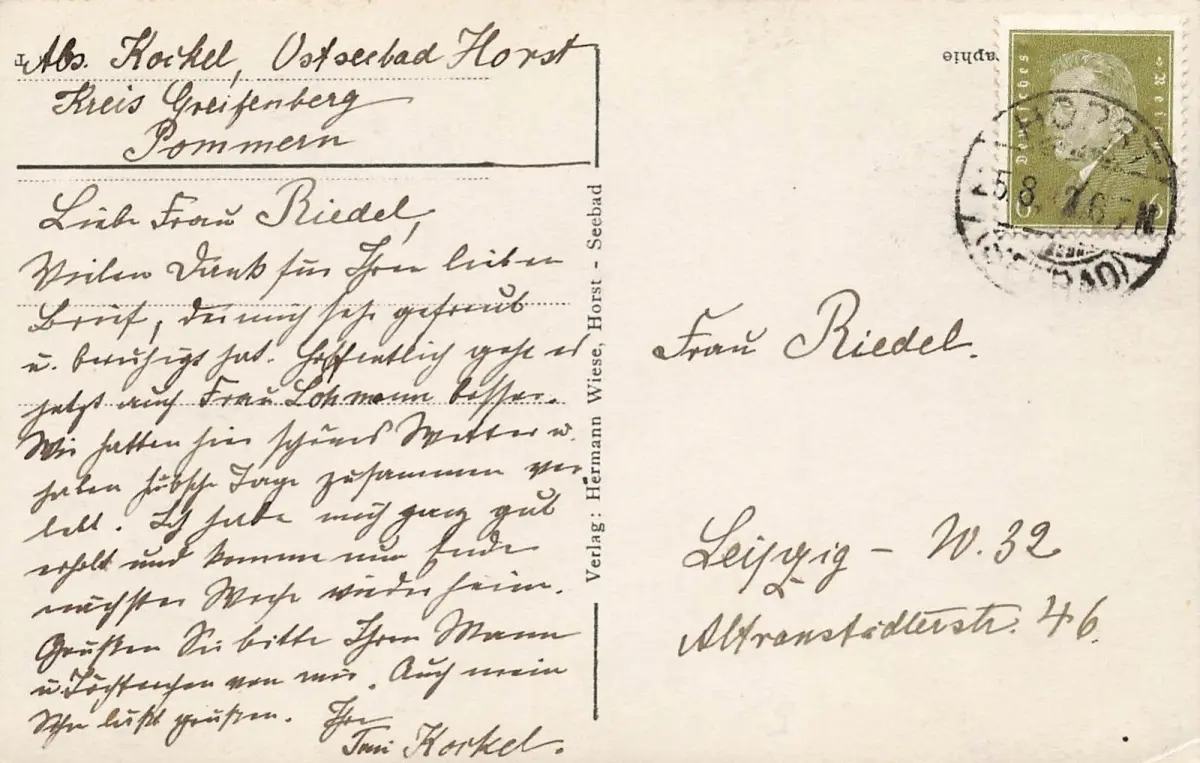 Abs. Kockel, Ostseebad Horst
Kreis Greifenberg
Pommern
Liebe Frau Riedel,
Vielen Dank für Ihren lieben
Brief, der mich sehr gefreut
u. beruhigt hat. Hoffentlich geht es
jetzt auch Frau Lohmann besser.
Wir hatten hier schönes Wetter u.
haben hübsche Tage zusammen ver
lebt. Ich habe mich ganz gut
erholt und komme nun Ende
nächster Woche wieder heim.
Grüßen Sie bitte Ihren Mann
u. Töchterchen von mir. Auch mein
läßt grüßen. Ihre
Toni Kockel.
Verlag: Hermann Wiese, Horst - Seebad
aphie
Deutsches Reich
6
HORST
5.8. 6-7N
(SEEBAD)
Frau Riedel.
Leipzig – W. 32
Altranstädterstr. 46.